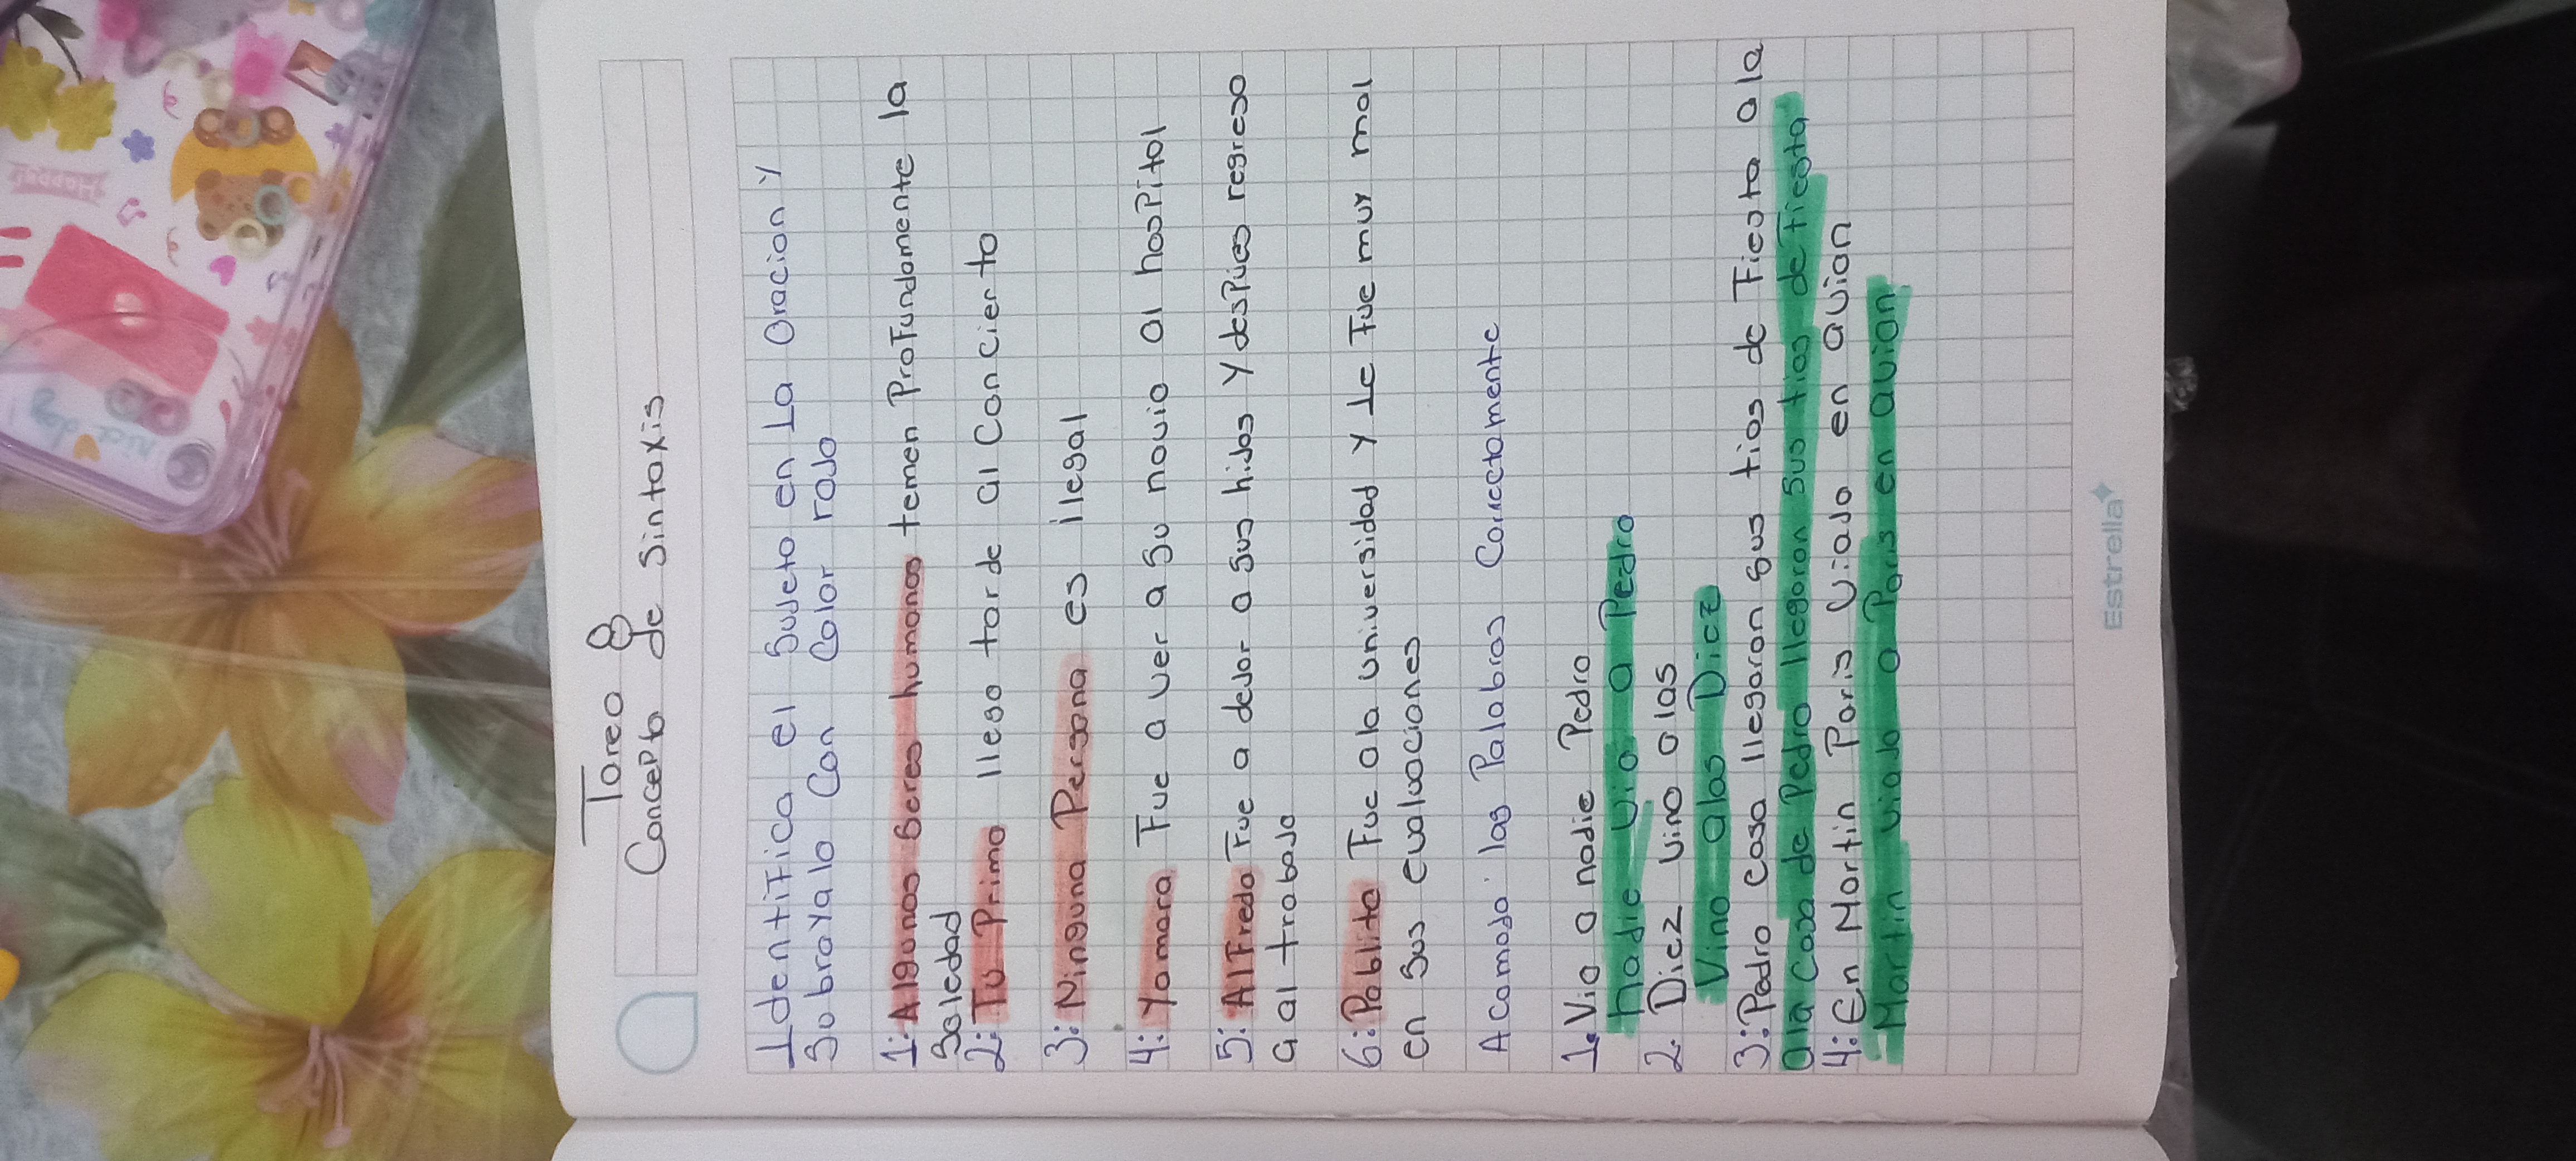 Tarea 8
Concepto de Sintaxis
Identifica el Sujeto en La Oracion y
Sobrayalo Con Color rojo
1: Algunos Seres humanos temen Profundamente la
Soledad
2: Tu Primo llego tarde al Concierto
3: Ninguna Persona es ilegal
4: Yamara Fue a ver a su novio al hospital
5: Alfredo Fue a dejar a sus hijos y despues regreso
a al trabajo
6: Pablito Fue ala universidad y le Fue muy mal
en sus evaluaciones
Acomoda las Palabras Correctamente
1. Vio a nadie Pedro
nadie vio a Pedro
2. Diez vino alas
Vino alas Diez
3: Pedro casa llegaron sus tios de Fiesta ala
ala casa de Pedro llegaron sus tios de fiesta
4: En Martin Paris viajo en avion
Martin viajo a Paris en avion
Estrella